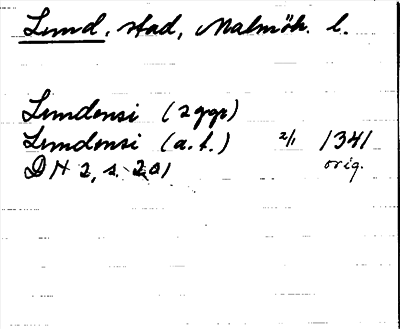 Lund, stad, Malmöh. l.
Lundensi (2 ggr)
Lundensi (a. f.) 2/1 1341
DN 2, s. 201 orig.